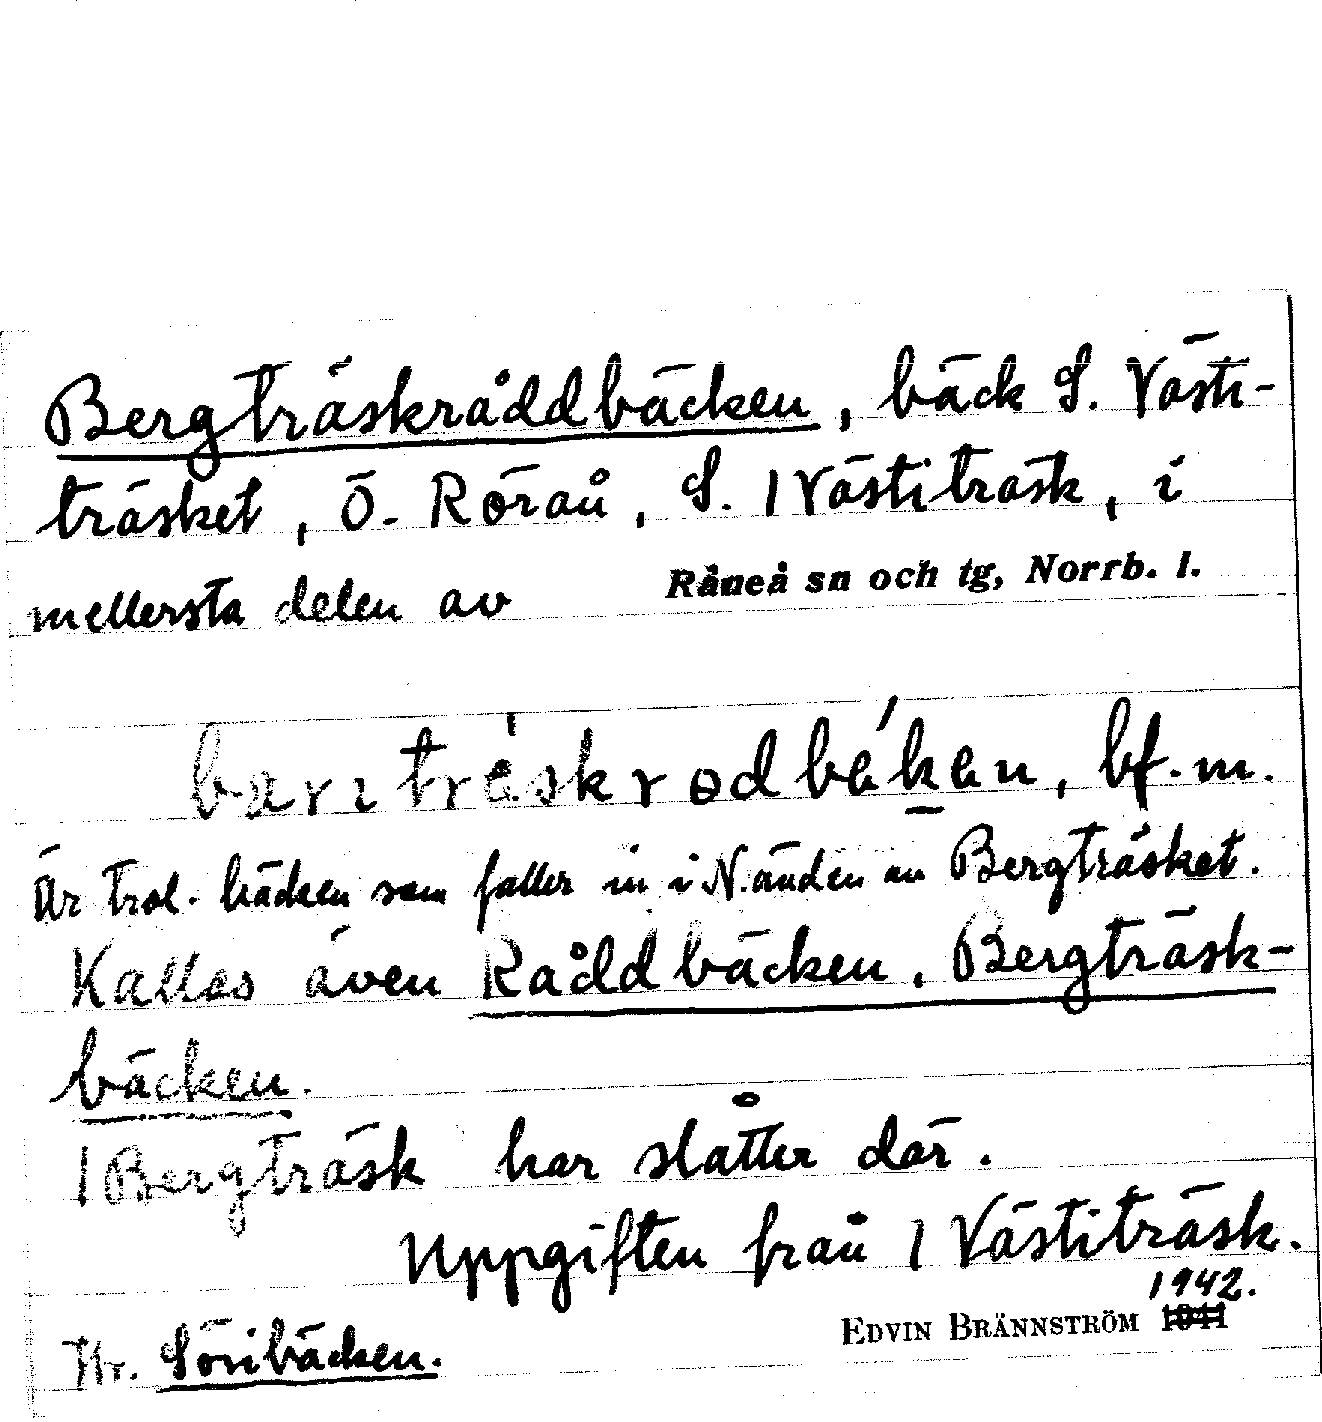 Bergträskråddbäcken, bäck S. Västi-
träsket, Ö. Röraån, S. 1 Västiträsk, i
mellersta delen av Råneå sn och tg, Norrb. l.
bf. m.
Är trol. bäcken som faller in i N. änden av Bergträsket.
Kallas även Råddbäcken, Bergträsk-
bäcken.
1 Bergträsk har slåtter där.
Uppgiften från 1 Västiträsk.
1942.
EDVIN BRÄNNSTRÖM 1941
Hr. Söribäcken.